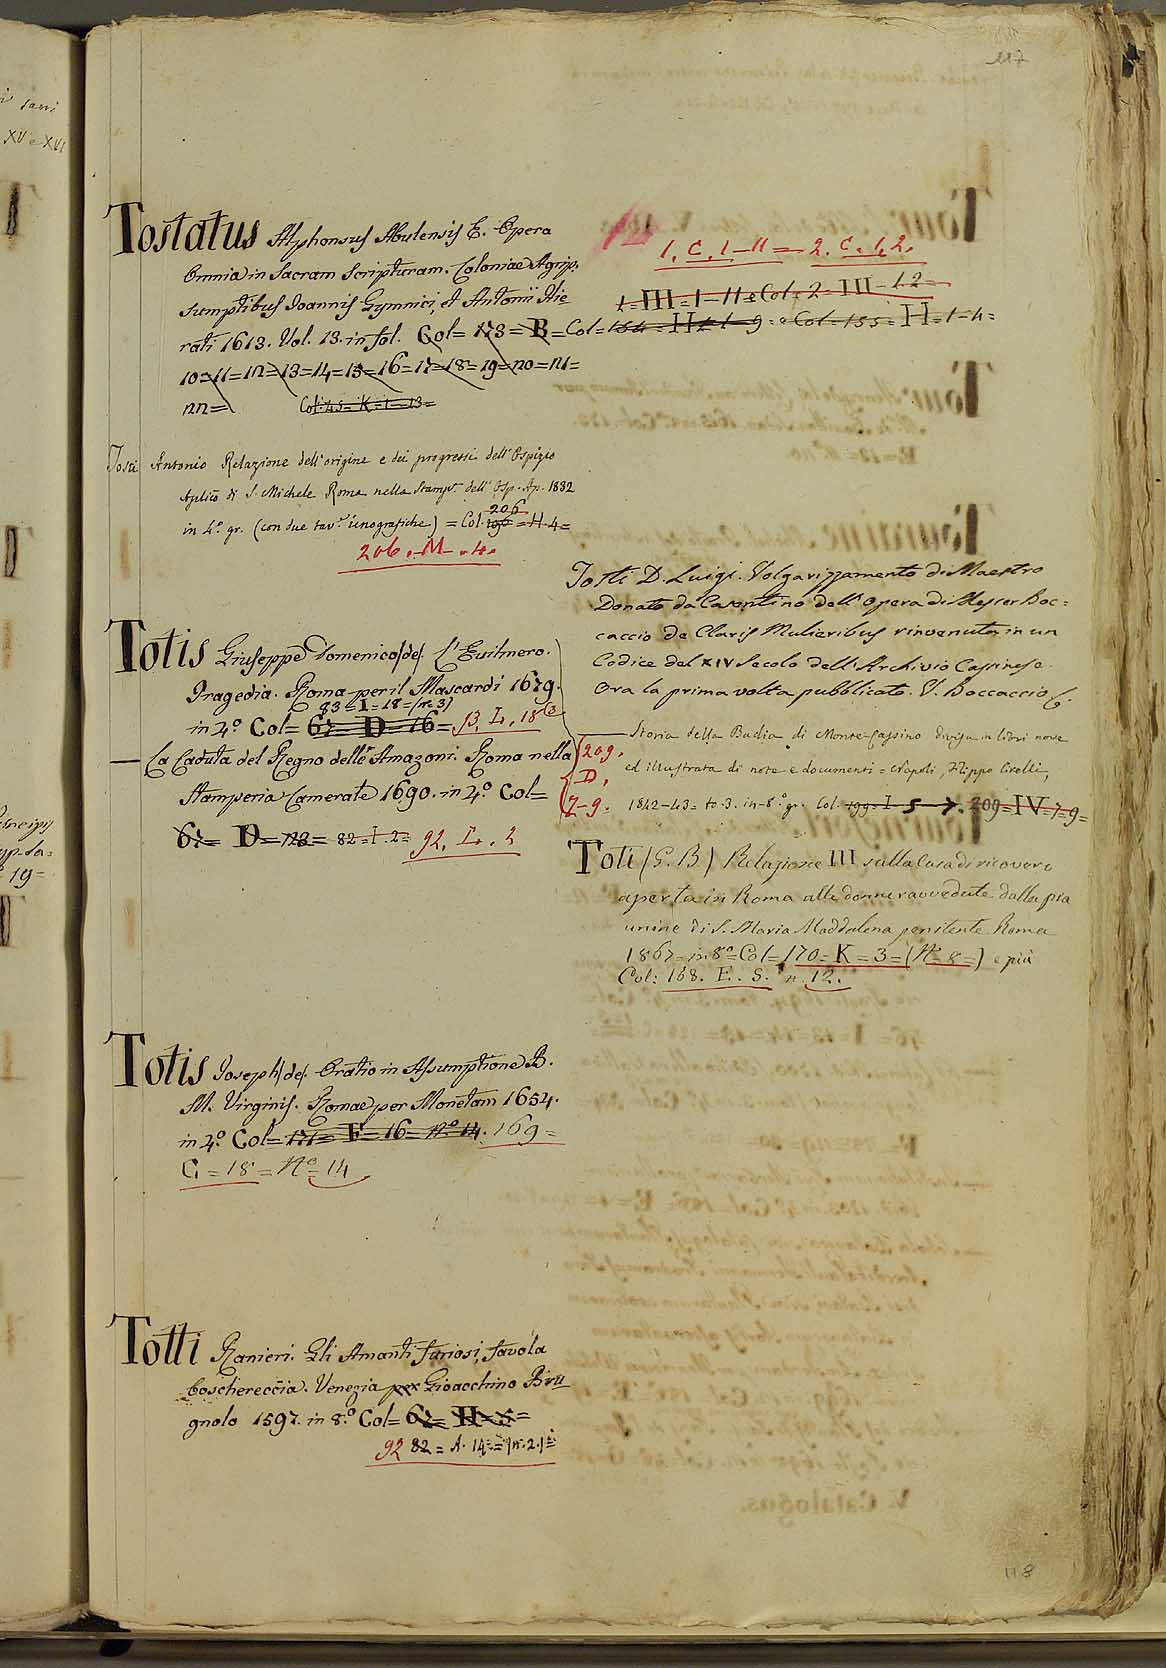 117
Tostatus Alphonsus Abulensis E. Opera
Omnia in Sacram Scripturam. Coloniae Agrip.
sumptibus Joannis Gymnici, et Antonii Hie
rati 1613. Vol. 13. in fol. Col= 173= B= Col= 154= H= 1-9= e Col= 155= H= 1-4=
10=11=12=13=14=15=16=17=18=19=20=21=
22= Col. 45= K=1=13=
1. C. 1-11= 2. C. 1,2.
1= III= 1-11 e Col= 2= III- 1.2=
Tosti Antonio Relazione dell'origine e dei progressi dell'Ospizio
Aplico di S. Michele Roma nella Stamp. dell'Osp. Ap. 1832
in 4.° gr. (con due tav.e icnografiche) = Col. 206 = H-4=
206.-M-.4.
Totis Giuseppe Domenico (de). L'Evilmero.
Tragedia. Roma per il Mascardi 1679.
83= I= 18= (n. 3)
in 4.° Col= 67= D= 16= L. 18
— La Caduta del Regno delle Amazoni. Roma nella
Stamperia Camerale 1690. in 4.° Col=
67= D= 82=I.2= 92. L. 2
Totis Joseph (de). Oratio in Assumptione B.
M. Virginis. Romae per Monetam 1654.
in 4.° Col= 171= F= 16= N.° 14. 169=
G= 18= N.° 14
Totti Ranieri. Gli Amanti furiosi, favola
boschereccia. Venezia per Gioacchino Bru
gnolo 1597. in 8.° Col= 67= H= 5=
92 82= A. 14= (n. 2.)=
Tosti D. Luigi. Volgarizzamento di Maestro
Donato da Casentino dell'opera di Messer Boc=
caccio de Claris Mulieribus rinvenuto in un
Codice del XIV Secolo dell'Archivio Cassinese.
Ora la prima volta pubblicato. V. Boccaccio G.
— Storia della Badia di Monte-Cassino divisa in libri nove
ed illustrata di note e documenti = Napoli, Filippo Cirelli,
1842-43= to. 3. in-8.° gr. Col. 199= I- 5-7. 209=IV=7-9=
209.
D.
7-9.
Toti (G. B) Relazione III sulla Casa di ricovero
aperta in Roma alle donne ravvedute dalla pia
unione di S. Maria Maddalena penitente Roma
1867= in 8°= Col= 170= K= 3= (N.= 8=) e più
Col: 168. E. S. n. 12.
118